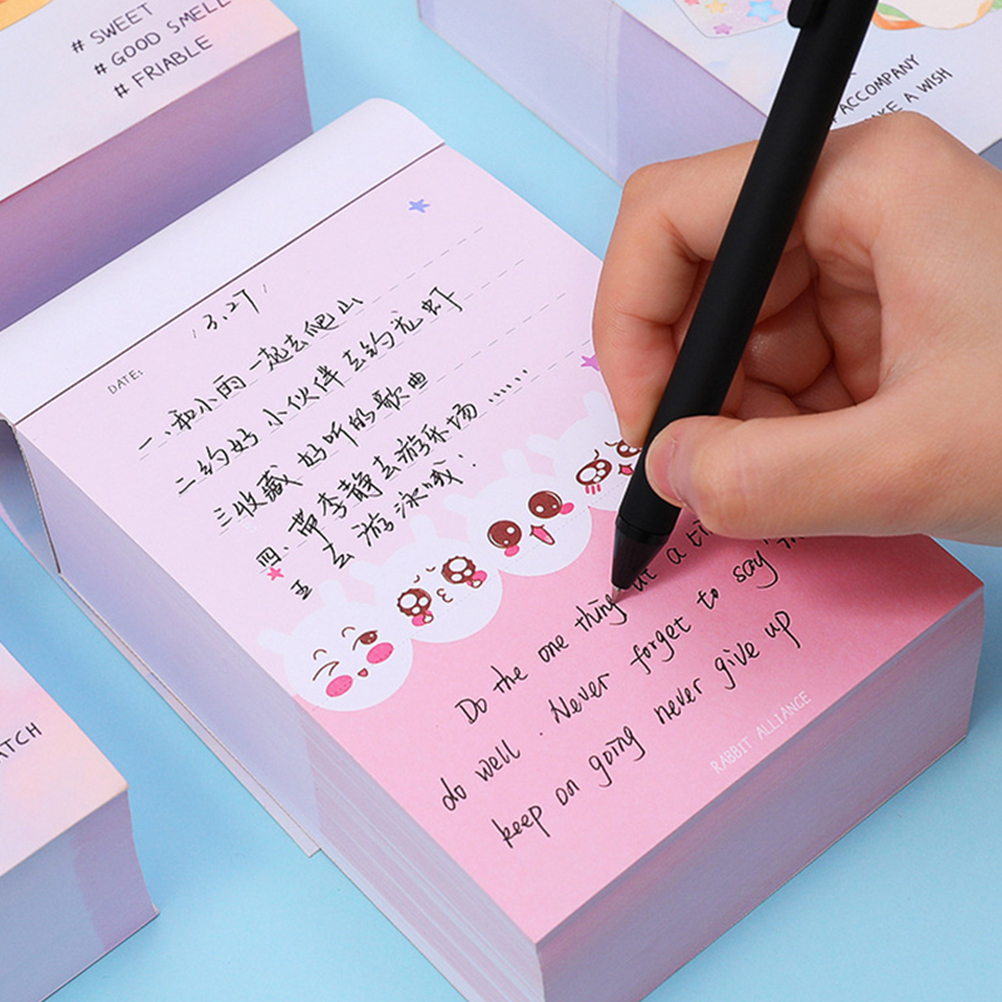 # SWEET
# GOOD SMELL
# FRIABLE
ACCOMPANY
A WISH
DATE:
3.27
一、和小雨一起去爬山
二约好小伙伴去钓龙虾
三收藏好听的歌曲
四、带李静去游乐场……
五 去游泳哦!
Do the one thing at a
do well. Never forget to say
keep on going never give up
RABBIT ALLIANCE